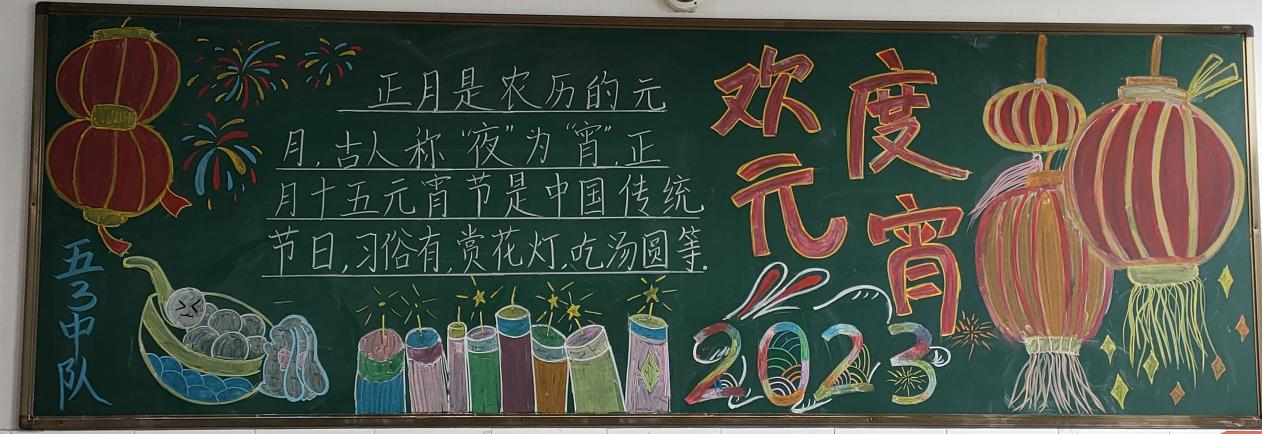 正月是农历的元
月，古人称“夜”为“宵”，正
月十五元宵节是中国传统
节日，习俗有，赏花灯，吃汤圆等。
欢度
元宵
2023
五3中队